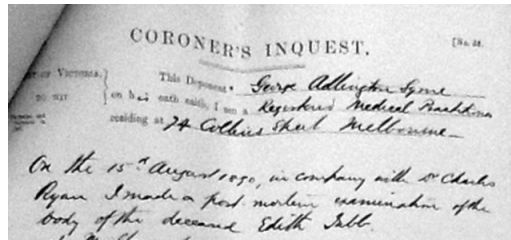 CORONER'S INQUEST.
[No. 28.
Victoria,
TO WIT
This Deponent George Adlington Syme
on his oath saith, I am a Registered Medical Practitioner
residing at 74 Collins Street Melbourne
On the 15th August 1890, in company with Dr Charles
Ryan I made a post mortem examination of the
body of the deceased Edith Tabb.